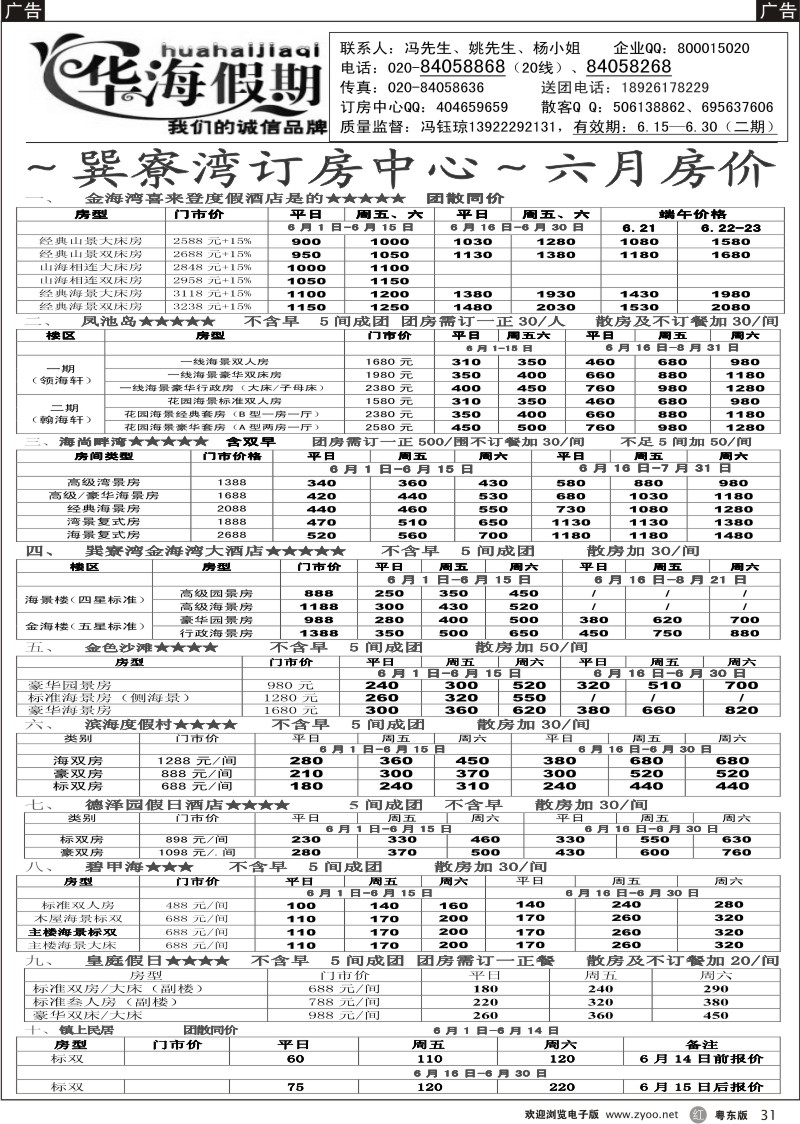 广告
广告
huahaijiaqi
华海假期
我们的诚信品牌
联系人：冯先生、姚先生、杨小姐 企业QQ：800015020
电话：020-84058868（20线）、84058268
传真：020-84058636 送团电话：18926178229
订房中心QQ：404659659 散客Q Q：506138862、695637606
质量监督：冯钰琼13922292131，有效期：6.15—6.30（二期）
～巽寮湾订房中心～六月房价
一、 金海湾喜来登度假酒店是的★★★★★ 团散同价
房型 门市价 平日 周五、六 平日 周五、六 端午价格
6月1日-6月15日 6月16日-6月30日 6.21 6.22-23
经典山景大床房 2588元+15% 900 1000 1030 1280 1080 1580
经典山景双床房 2688元+15% 950 1050 1130 1380 1180 1680
山海相连大床房 2848元+15% 1000 1100
山海相连双床房 2958元+15% 1050 1150
经典海景大床房 3118元+15% 1100 1200 1380 1930 1430 1980
经典海景双床房 3238元+15% 1150 1250 1480 2030 1530 2080
二、 凤池岛★★★★★ 不含早 5间成团 团房需订一正30/人 散房及不订餐加30/间
楼区 房型 门市价 平日 周五六 平日 周五 周六
6月1-15日 6月16日-8月31日
一期（领海轩） 一线海景双人房 1680元 310 350 460 680 980
一线海景豪华双床房 1980元 350 400 660 880 1180
一线海景豪华行政房（大床/子母床） 2380元 400 450 760 980 1280
二期（翰海轩） 花园海景标准双人房 1580元 310 350 460 680 980
花园海景经典套房（B型一房一厅） 2380元 350 400 660 880 1180
花园海景豪华套房（A型两房一厅） 2580元 450 500 760 980 1280
三、海尚畔湾★★★★★ 含双早 团房需订一正500/围不订餐加30/间 不足5间加50/间
房间类型 门市价格 平日 周五 周六 平日 周五 周六
6月1日-6月15日 6月16日-7月31日
高级湾景房 1388 340 360 430 580 880 980
高级/豪华海景房 1688 420 440 530 680 1030 1180
经典海景房 2088 440 460 550 730 1080 1280
湾景复式房 1888 470 510 650 1130 1130 1380
海景复式房 2688 520 560 700 1180 1180 1480
四、 巽寮湾金海湾大酒店★★★★★ 不含早 5间成团 散房加30/间
楼区 房型 门市价 平日 周五 周六 平日 周五 周六
6月1日-6月15日 6月16日-8月21日
海景楼（四星标准） 高级园景房 888 250 350 450 / / /
高级海景房 1188 300 430 520 / / /
金海楼（五星标准） 豪华园景房 988 280 400 500 380 620 700
行政海景房 1388 350 500 650 450 750 880
五、 金色沙滩★★★★ 不含早 5间成团 散房加50/间
房型 门市价 平日 周五 周六 平日 周五 周六
6月1日-6月15日 6月16日-6月30日
豪华园景房 980元 240 300 520 320 510 700
标准海景房（侧海景） 1280元 260 320 550 / / /
豪华海景房 1680元 300 360 620 380 660 820
六、 滨海度假村★★★★ 不含早 5间成团 散房加30/间
类别 门市价 平日 周五 周六 平日 周五 周六
6月1日-6月15日 6月16日-6月30日
海双房 1288元/间 280 360 450 380 680 680
豪双房 888元/间 210 300 370 300 520 520
标双房 688元/间 180 240 310 240 440 440
七、 德泽园假日酒店★★★★ 5间成团 不含早 散房加30/间
类别 门市价 平日 周五 周六 平日 周五 周六
6月1日-6月15日 6月16日-6月30日
标双房 898元/间 230 330 460 330 550 630
豪双房 1098元/.间 280 370 500 430 600 760
八、 碧甲海★★★ 不含早 5间成团 散房加30/间
房型 门市价 平日 周五 周六 平日 周五 周六
6月1日-6月15日 6月16日-6月30日
标准双人房 488元/间 100 140 160 140 240 280
木屋海景标双 688元/间 110 170 200 170 260 320
主楼海景标双 688元/间 110 170 200 170 260 320
主楼海景大床 688元/间 110 170 200 170 260 320
九、 皇庭假日★★★★ 不含早 5间成团 团房需订一正餐 散房及不订餐加20/间
房型 门市价 平日 周五 周六
标准双房/大床（副楼） 688元/间 180 240 290
标准叁人房（副楼） 788元/间 220 320 380
豪华双床/大床 988元/间 260 360 450
十、镇上民居 团散同价 6月1日-6月14日
房型 门市价 平日 周五 周六 备注
标双 60 110 120 6月14日前报价
6月16日-6月30日
标双 75 120 220 6月15日后报价
欢迎浏览电子版 www.zyoo.net 红 粤东版 31